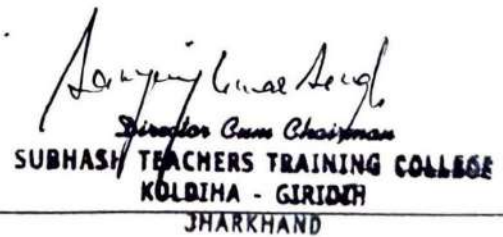 Director Cum Chairman
SUBHASH TEACHERS TRAINING COLLEGE
KOLDIHA - GIRIDIH
JHARKHAND